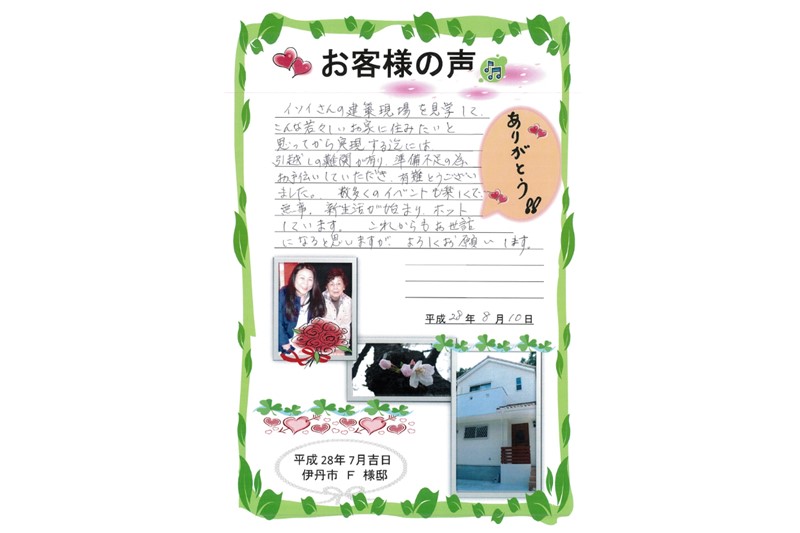 お客様の声
イソイさんの建築現場を見学して、
こんな若々しいお家に住みたいと
思ってから実現する迄には
引越しの難関が有り、準備不足の為
お手伝いしていただき、有難とうござい
ました。 数多くのイベントも楽しくて、
無事、新生活が始まり、ホット
しています。 これからもお世話
になると思しますが、よろしくお願いします。
ありがとう!!
平成28年8月10日
平成28年7月吉日
伊丹市 F 様邸